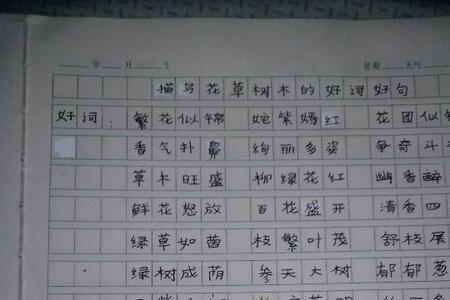 年 月 日 星期 天气
描写花草树木的好词好句
好词： 繁花似锦 姹紫嫣红 花团似
香气扑鼻 绚丽多姿 争奇斗
草木旺盛 柳绿花红 幽香醉
鲜花怒放 百花盛开 清香四
绿草如茵 枝繁叶茂 舒枝展
绿树成荫 参天大树 郁郁葱